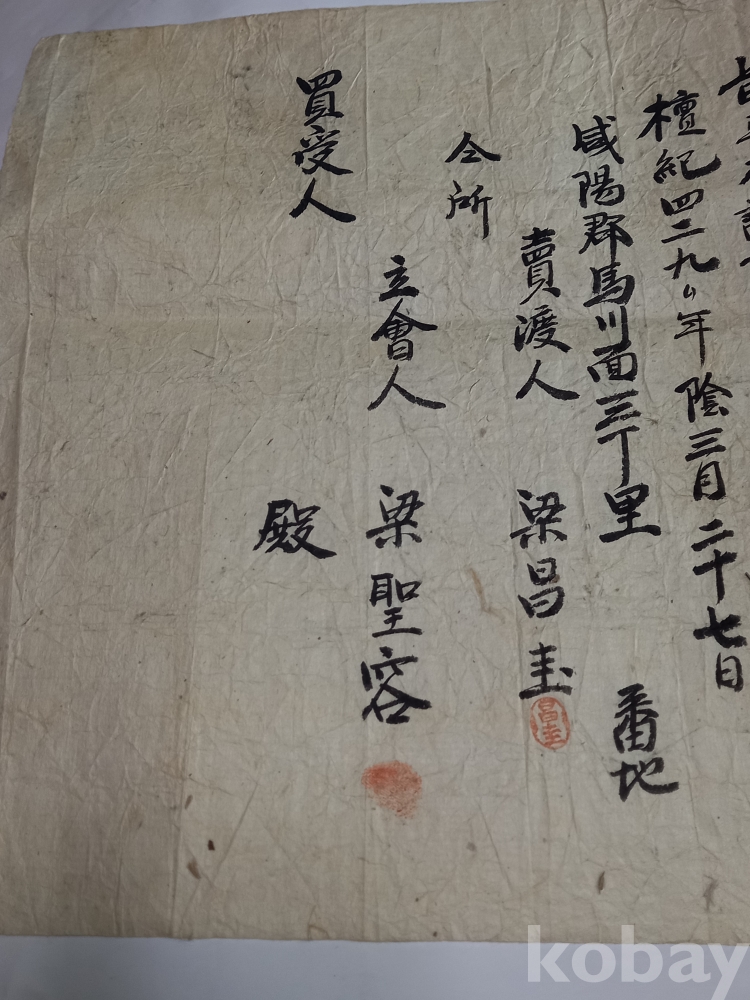 檀紀四二九〇年陰三月二十七日
咸陽郡馬川面三丁里 番地
賣渡人 梁昌圭
昌圭
仝所
立會人 梁聖容
買受人 殿
kobay